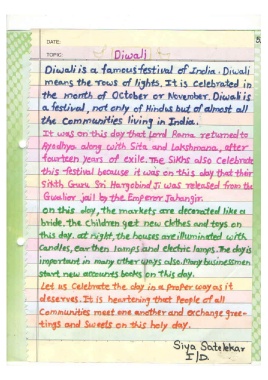 DATE:
TOPIC: Diwali
Diwali is a famous festival of India. Diwali
means the rows of lights. It is celebrated in
the month of October or November. Diwali is
a festival, not only of Hindus but of almost all
the Communities living in India.
It was on this day that Lord Rama returned to
Ayodhya along with Sita and Lakshmana, after
fourteen years of exile. The Sikhs also Celebrate
this festival because it was on this day that their
Sixth Guru Sri Hargobind Ji was released from the
Gwalior jail by the Emperor Jahangir.
On this day, the markets are decorated like a
bride. The Children get new Clothes and toys on
this day. at night, the houses are illuminated with
Candles, earthen lamps and electric lamps. The day is
important in many other ways also. Many businessmen
start new accounts books on this day.
Let us Celebrate the day in a proper way as it
deserves. It is heartening that People of all
Communities meet one another and exchange gree-
tings and Sweets on this holy day.
Siya Satelekar
I/D.